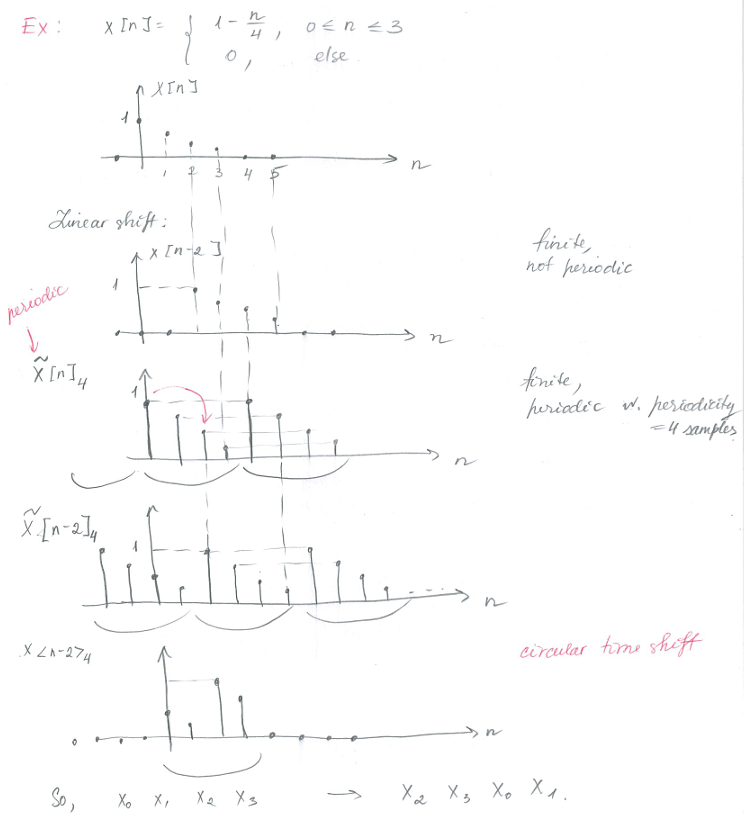 Ex: x[n] = { 1 - n/4, 0 ≤ n ≤ 3
0, else
x[n]
1
1 2 3 4 5 n
Linear shift:
x[n-2]
finite,
not periodic
1
n
periodic
x̃[n]₄
1
finite,
periodic w. periodicity
= 4 samples
n
x̃[n-2]₄
1
n
x<n-2>₄
circular time shift
n
So, x₀ x₁ x₂ x₃ → x₂ x₃ x₀ x₁.